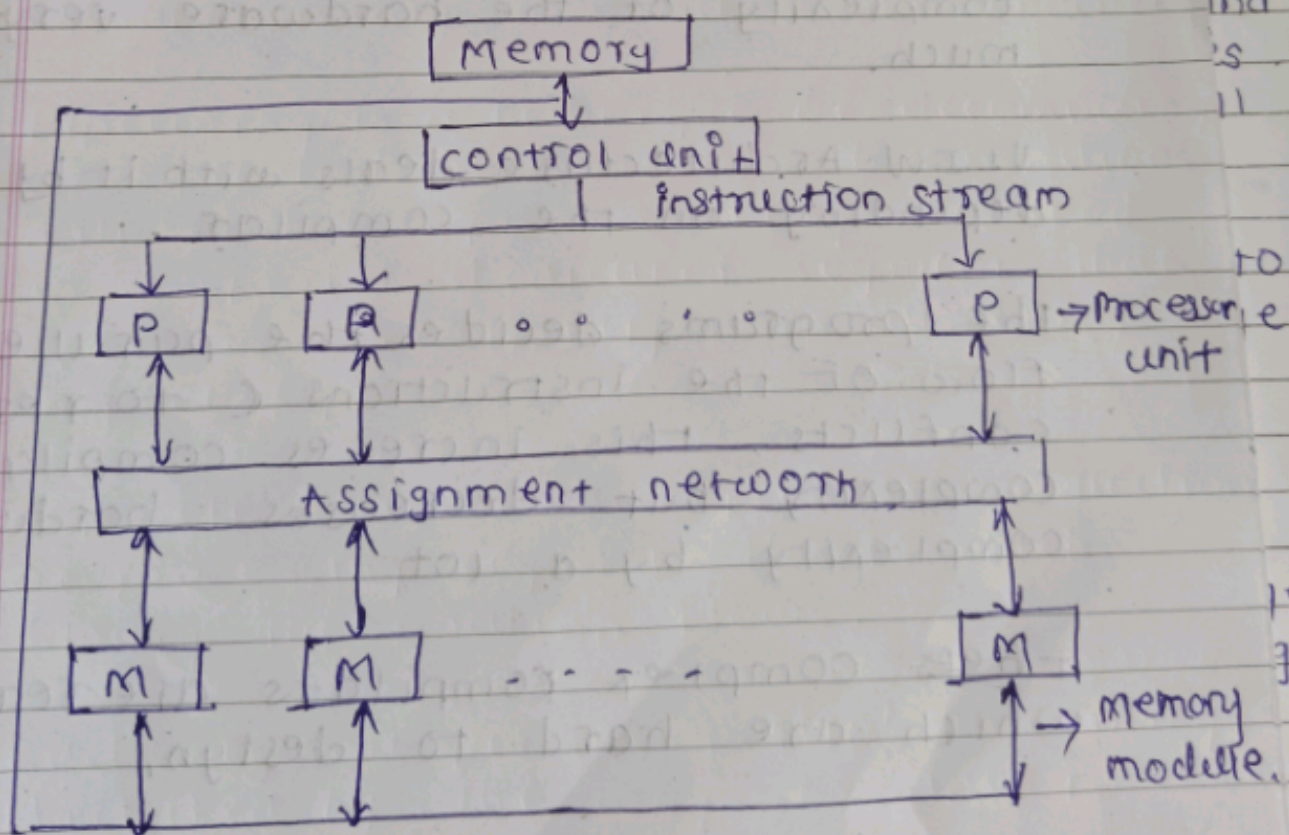 Memory
control unit
instruction stream
P
P
P
→ Processor
unit
Assignment network
M
M
M
→ memory
module.